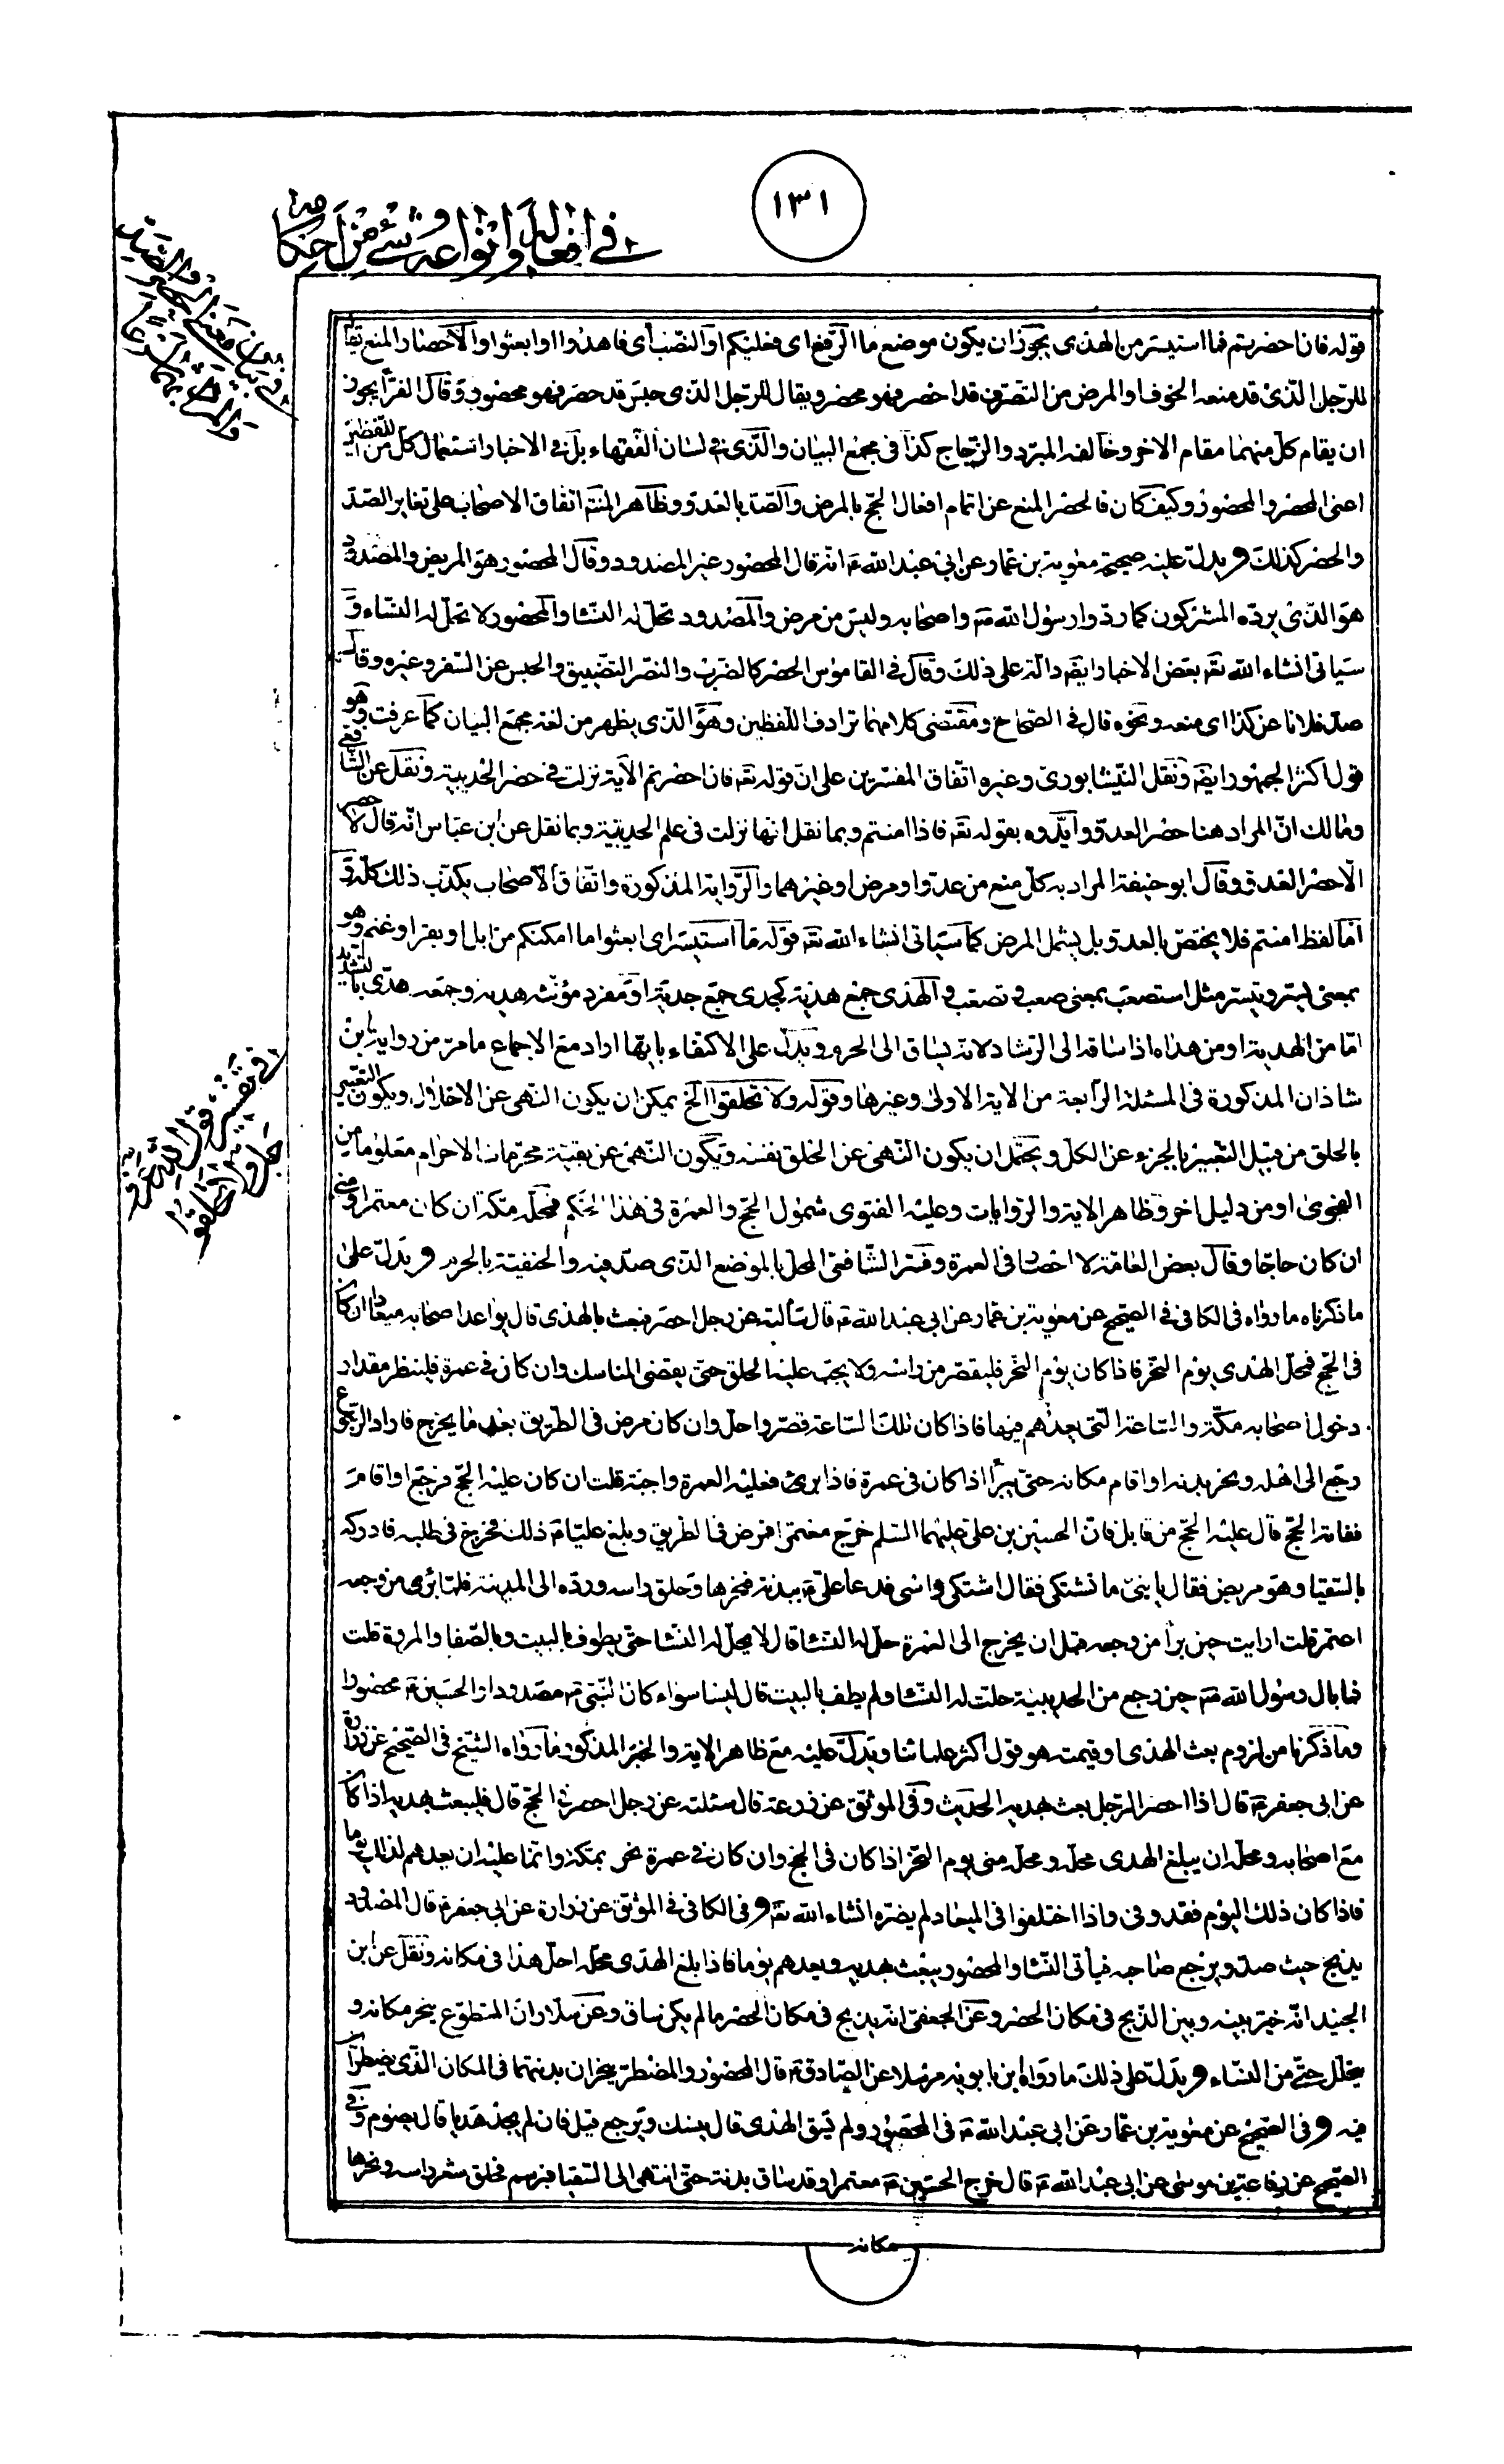 ١٣١
في افعاله وانواعه وشئ من احكامه
في بيان معنى الحصر والصد
في تفسير قول الله عز وجل ولا تحلقوا
قوله فان احصرتم فما استيسر من الهدى يجوز ان يكون موضع ما الرفع اى فعليكم او النصب اى فاهدوا او ابعثوا والاحصار المنع يقا
للرجل الذى قد منعه الخوف او المرض من التصرف قد احصر فهو محصر ويقال للرجل الذى حبس قد حصر فهو محصور وقال الفراء يجوز
ان يقام كل منهما مقام الاخر وخالفه المبرد والزجاج كذا في مجمع البيان والذى في لسان الفقهاء بل في الاخبار استعمال كل من اللفظين
اعنى المحصر والمحصور وكيف كان فالحصر المنع عن اتمام افعال الحج بالمرض والصد بالعدو وظاهر المنتهى اتفاق الاصحاب على تغاير الصد
والحصر كذلك ويدل عليه صحيحة معوية بن عمار عن ابى عبد الله ع انه قال المحصور غير المصدود وقال المحصور هو المريض والمصدود
هو الذى يرده المشركون كما ردوا رسول الله ص واصحابه وليس من مرض والمصدود تحل له النساء والمحصور لا تحل له النساء و
سياتى انشاء الله تع بعض الاخبار ايضا دالة على ذلك وقال في القاموس الحصر كالضرب والنصر التضييق والحبس عن السفر وغيره وقال
صد فلانا عن كذا اى منعه ونحوه قال في الصحاح ومقتضى كلامهما ترادف اللفظين وهو الذى يظهر من لغة مجمع البيان كما عرفت وهو
قول اكثر الجمهور ايضا ونقل النيشابورى وغيره اتفاق المفسرين على ان قوله تع فان احصرتم الآية نزلت في حصر الحديبية ونقل عن الشافعى
ومالك ان المراد هنا حصر العدو وايدوه بقوله تع فاذا امنتم وبما نقل انها نزلت في علم الحديبية وبما نقل عن ابن عباس انه قال لا حصر
الا حصر العدو وقال ابو حنيفة المراد به كل منع من عدو او مرض او غيرهما والرواية المذكورة واتفاق الاصحاب يكذب ذلك كله و
اما لفظ امنتم فلا يختص بالعدو بل يشمل المرض كما سياتى انشاء الله تع قوله فما استيسر اى ابعثوا ما امكنكم من ابل او بقر او غنم وهو
بمعنى ايسر وتيسر مثل استصعب بمعنى صعب وتصعب والهدى جمع هدية كجدى جمع جدية او مفرد مؤنثه هدية وجمعه هدى بالتشديد
اما من الهدية او من هداه اذا ساقه الى الرشاد لانه يساق الى الحرم ويدل على الاكتفاء بايها اراد مع الاجماع ما مر من رواية ابن
شاذان المذكورة في المسئلة الرابعة من الاية الاولى وغيرها وقوله ولا تحلقوا الخ يمكن ان يكون النهى عن الاحلال ويكون التعبير
بالحلق من قبيل التعبير بالجزء عن الكل ويحتمل ان يكون النهى عن الحلق نفسه ويكون النهى عن بقية محرمات الاحرام معلوما من
الفحوى او من دليل اخر وظاهر الاية والروايات وعليه الفتوى شمول الحج والعمرة في هذا الحكم فمحله مكة ان كان معتمرا ومنى
ان كان حاجا وقال بعض العامة لا احصار في العمرة وفسر الشافعى المحل بالموضع الذى صد فيه والحنفية بالحرم ويدل على
ما ذكرناه ما رواه في الكافى في الصحيح عن معوية بن عمار عن ابى عبد الله ع قال سألته عن رجل احصر فبعث بالهدى قال يواعد اصحابه ميعادا ان كا
في الحج فمحل الهدى يوم النحر فاذا كان يوم النحر فليقصر من راسه ولا يجب عليه الحلق حتى يقضى المناسك وان كان في عمرة فلينظر مقدار
دخول اصحابه مكة والساعة التى يعدهم فيها فاذا كان تلك الساعة قصر واحل وان كان مرض في الطريق بعد ما يخرج فاراد الرجوع
رجع الى اهله ونحر بدنه او اقام مكانه حتى يبرأ اذا كان في عمرة فاذا برئ فعليه العمرة واجبة قلت ان كان عليه الحج فرجع او اقام
ففاته الحج قال عليه الحج من قابل فان الحسين بن على عليهما السلم خرج معتمرا فمرض في الطريق وبلغ عليا ع ذلك فخرج في طلبه فادركه
بالسقيا وهو مريض فقال يا بنى ما تشتكى فقال اشتكى راسى فدعا على ع ببدنة فنحرها وحلق راسه ورده الى المدينة فلما برئ من وجعه
اعتمر قلت ارايت حين برأ من وجعه قبل ان يخرج الى العمرة حل له النساء قال لا يحل له النساء حتى يطوف بالبيت وبالصفا والمروة قلت
فما بال رسول الله ص حين رجع من الحديبية حلت له النساء ولم يطف بالبيت قال ليسا سواء كان النبى ص مصدودا والحسين ع محصورا
وما ذكرنا من لزوم بعث الهدى او قيمته هو قول اكثر علمائنا ويدل عليه مع ظاهر الاية والخبر المذكور ما رواه الشيخ في الصحيح عن زرارة
عن ابى جعفر ع قال اذا احصر الرجل بعث بهديه الحديث وفى الموثق عن زرعة قال سئلته عن رجل احصر في الحج قال فليبعث بهديه اذا كا
مع اصحابه ومحله ان يبلغ الهدى محله ومحله منى يوم النحر اذا كان في الحج وان كان في عمرة نحر بمكة وانما عليه ان يعدهم لذلك يوما
فاذا كان ذلك اليوم فقد وفى واذا اختلفوا في الميعاد لم يضره انشاء الله تع وفى الكافى في الموثق عن زرارة عن ابى جعفر ع قال المصدود
يذبح حيث صد ويرجع صاحبه فيأتى النساء والمحصور يبعث بهديه ويعدهم يوما فاذا بلغ الهدى محله احل هذا في مكانه ونقل عن ابن
الجنيد انه خير بينه وبين الذبح في مكان الحصر وعن الجعفى انه يذبح في مكان الحصر ما لم يكن ساق وعن سلار ان المتطوع ينحر مكانه و
يتحلل حتى من النساء ويدل على ذلك ما رواه ابن بابويه مرسلا عن الصادق ع قال المحصور والمضطر ينحران بدنتهما في المكان الذى يضطران
فيه وفى الصحيح عن معوية بن عمار عن ابى عبد الله ع في المحصور ولم يسق الهدى قال ينسك ويرجع قيل فان لم يجد هديا قال يصوم وفى
الصحيح عن رفاعة بن موسى عن ابى عبد الله ع قال خرج الحسين ع معتمرا وقد ساق بدنة حتى انتهى الى السقيا فبرسم فحلق شعر راسه ونحرها
مكانه